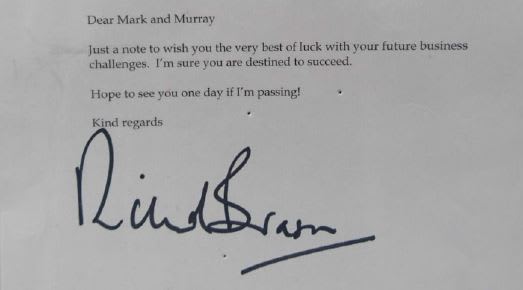 Dear Mark and Murray
Just a note to wish you the very best of luck with your future business
challenges.  I'm sure you are destined to succeed.
Hope to see you one day if I'm passing!
Kind regards